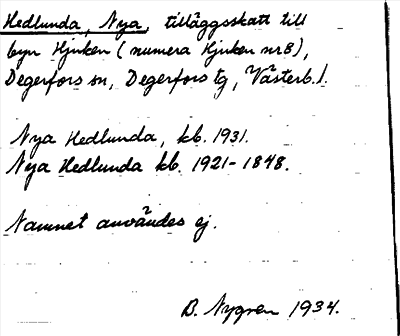 Hedlunda, Nya, tilläggsskatt till
byn Hjuken (numera Hjuken nr 8),
Degerfors sn, Degerfors tg, Västerb. l.
Nya Hedlunda, kb. 1931.
Nya Hedlunda kb. 1921-1848.
Namnet användes ej.
B. Nygren 1934.